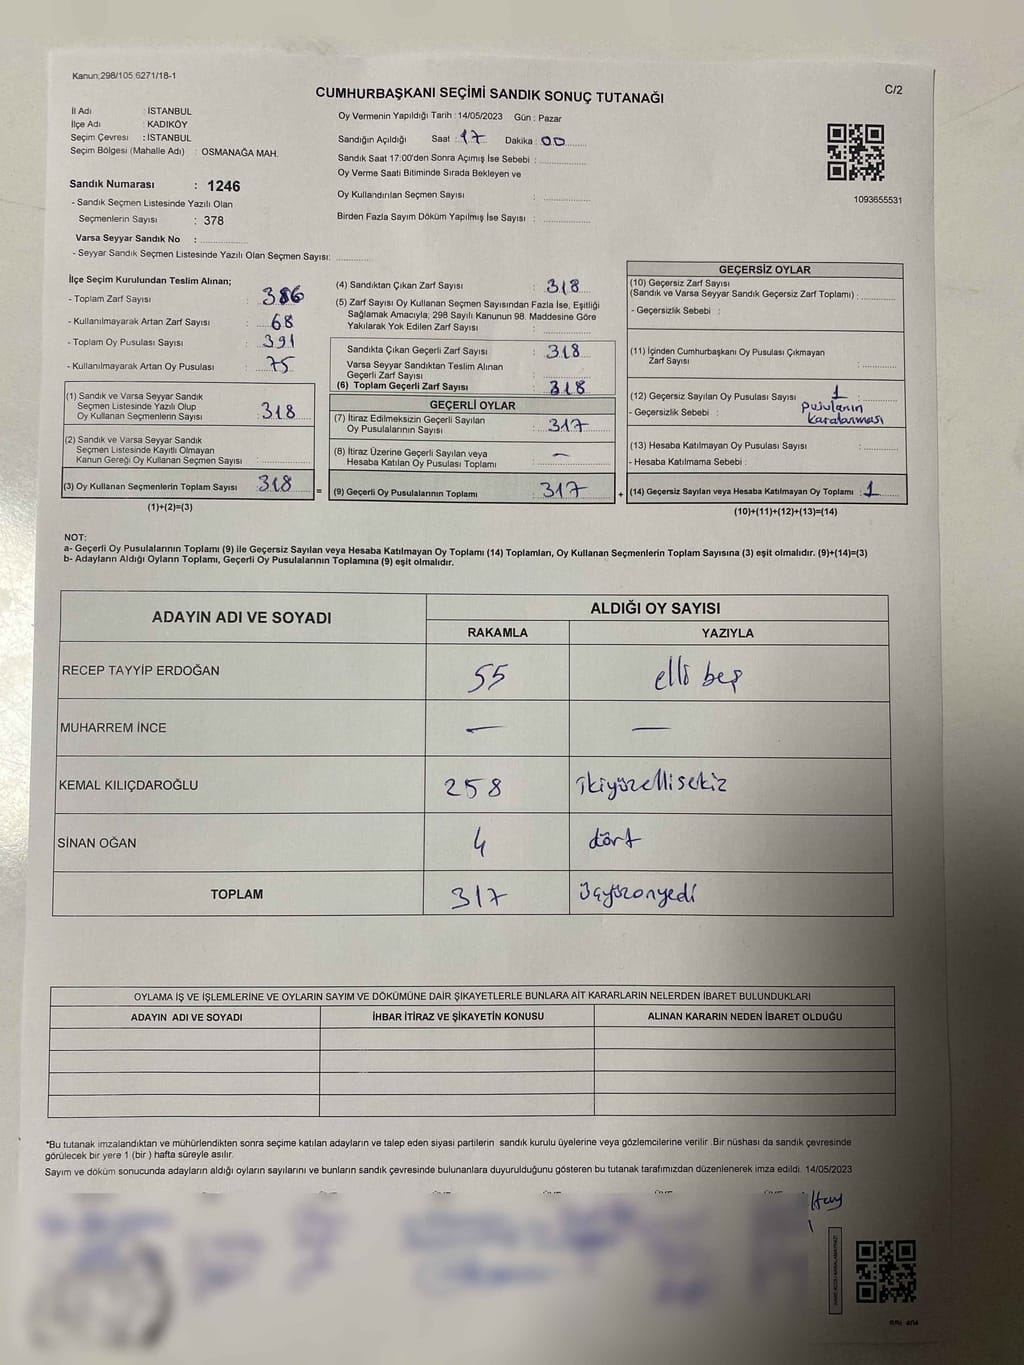 Kanun;298/105 6271/18-1
C/2
CUMHURBAŞKANI SEÇİMİ SANDIK SONUÇ TUTANAĞI
İl Adı : İSTANBUL
İlçe Adı : KADIKÖY
Seçim Çevresi : İSTANBUL
Seçim Bölgesi (Mahalle Adı) : OSMANAĞA MAH.
Sandık Numarası : 1246
- Sandık Seçmen Listesinde Yazılı Olan
Seçmenlerin Sayısı : 378
Varsa Seyyar Sandık No :
- Seyyar Sandık Seçmen Listesinde Yazılı Olan Seçmen Sayısı:
Oy Vermenin Yapıldığı Tarih : 14/05/2023 Gün : Pazar
Sandığın Açıldığı Saat : 17 Dakika : 00
Sandık Saat 17:00'den Sonra Açımış İse Sebebi :
Oy Verme Saati Bitiminde Sırada Bekleyen ve
Oy Kullandırılan Seçmen Sayısı :
Birden Fazla Sayım Döküm Yapılmış İse Sayısı :
1093655531
İlçe Seçim Kurulundan Teslim Alınan;
- Toplam Zarf Sayısı : 386
- Kullanılmayarak Artan Zarf Sayısı : 68
- Toplam Oy Pusulası Sayısı : 391
- Kullanılmayarak Artan Oy Pusulası : 75
(1) Sandık ve Varsa Seyyar Sandık
Seçmen Listesinde Yazılı Olup
Oy Kullanan Seçmenlerin Sayısı : 318
(2) Sandık ve Varsa Seyyar Sandık
Seçmen Listesinde Kayıtlı Olmayan
Kanun Gereği Oy Kullanan Seçmen Sayısı :
(3) Oy Kullanan Seçmenlerin Toplam Sayısı : 318
(1)+(2)=(3)
=
(4) Sandıktan Çıkan Zarf Sayısı : 318
(5) Zarf Sayısı Oy Kullanan Seçmen Sayısından Fazla İse, Eşitliği
Sağlamak Amacıyla; 298 Sayılı Kanunun 98. Maddesine Göre
Yakılarak Yok Edilen Zarf Sayısı :
Sandıkta Çıkan Geçerli Zarf Sayısı : 318
Varsa Seyyar Sandıktan Teslim Alınan
Geçerli Zarf Sayısı :
(6) Toplam Geçerli Zarf Sayısı : 318
GEÇERLİ OYLAR
(7) İtiraz Edilmeksizin Geçerli Sayılan
Oy Pusulalarının Sayısı : 317
(8) İtiraz Üzerine Geçerli Sayılan veya
Hesaba Katılan Oy Pusulası Toplamı : —
(9) Geçerli Oy Pusulalarının Toplamı : 317
+
GEÇERSİZ OYLAR
(10) Geçersiz Zarf Sayısı
(Sandık ve Varsa Seyyar Sandık Geçersiz Zarf Toplamı) :
- Geçersizlik Sebebi :
(11) İçinden Cumhurbaşkanı Oy Pusulası Çıkmayan
Zarf Sayısı :
(12) Geçersiz Sayılan Oy Pusulası Sayısı : 1
- Geçersizlik Sebebi : Pusulanın
karalanması
(13) Hesaba Katılmayan Oy Pusulası Sayısı :
- Hesaba Katılmama Sebebi :
(14) Geçersiz Sayılan veya Hesaba Katılmayan Oy Toplamı : 1
(10)+(11)+(12)+(13)=(14)
NOT:
a- Geçerli Oy Pusulalarının Toplamı (9) ile Geçersiz Sayılan veya Hesaba Katılmayan Oy Toplamı (14) Toplamları, Oy Kullanan Seçmenlerin Toplam Sayısına (3) eşit olmalıdır. (9)+(14)=(3)
b- Adayların Aldığı Oyların Toplamı, Geçerli Oy Pusulalarının Toplamına (9) eşit olmalıdır.
ADAYIN ADI VE SOYADI
ALDIĞI OY SAYISI
RAKAMLA YAZIYLA
RECEP TAYYİP ERDOĞAN 55 elli beş
MUHARREM İNCE — —
KEMAL KILIÇDAROĞLU 258 ikiyüzellisekiz
SİNAN OĞAN 4 dört
TOPLAM 317 üçyüzonyedi
OYLAMA İŞ VE İŞLEMLERİNE VE OYLARIN SAYIM VE DÖKÜMÜNE DAİR ŞİKAYETLERLE BUNLARA AİT KARARLARIN NELERDEN İBARET BULUNDUKLARI
ADAYIN ADI VE SOYADI İHBAR İTİRAZ VE ŞİKAYETİN KONUSU ALINAN KARARIN NEDEN İBARET OLDUĞU
*Bu tutanak imzalandıktan ve mühürlendikten sonra seçime katılan adayların ve talep eden siyasi partilerin sandık kurulu üyelerine veya gözlemcilerine verilir .Bir nüshası da sandık çevresinde
görülecek bir yere 1 (bir ) hafta süreyle asılır.
Sayım ve döküm sonucunda adayların aldığı oyların sayılarını ve bunların sandık çevresinde bulunanlara duyurulduğunu gösteren bu tutanak tarafımızdan düzenlenerek imza edildi. 14/05/2023